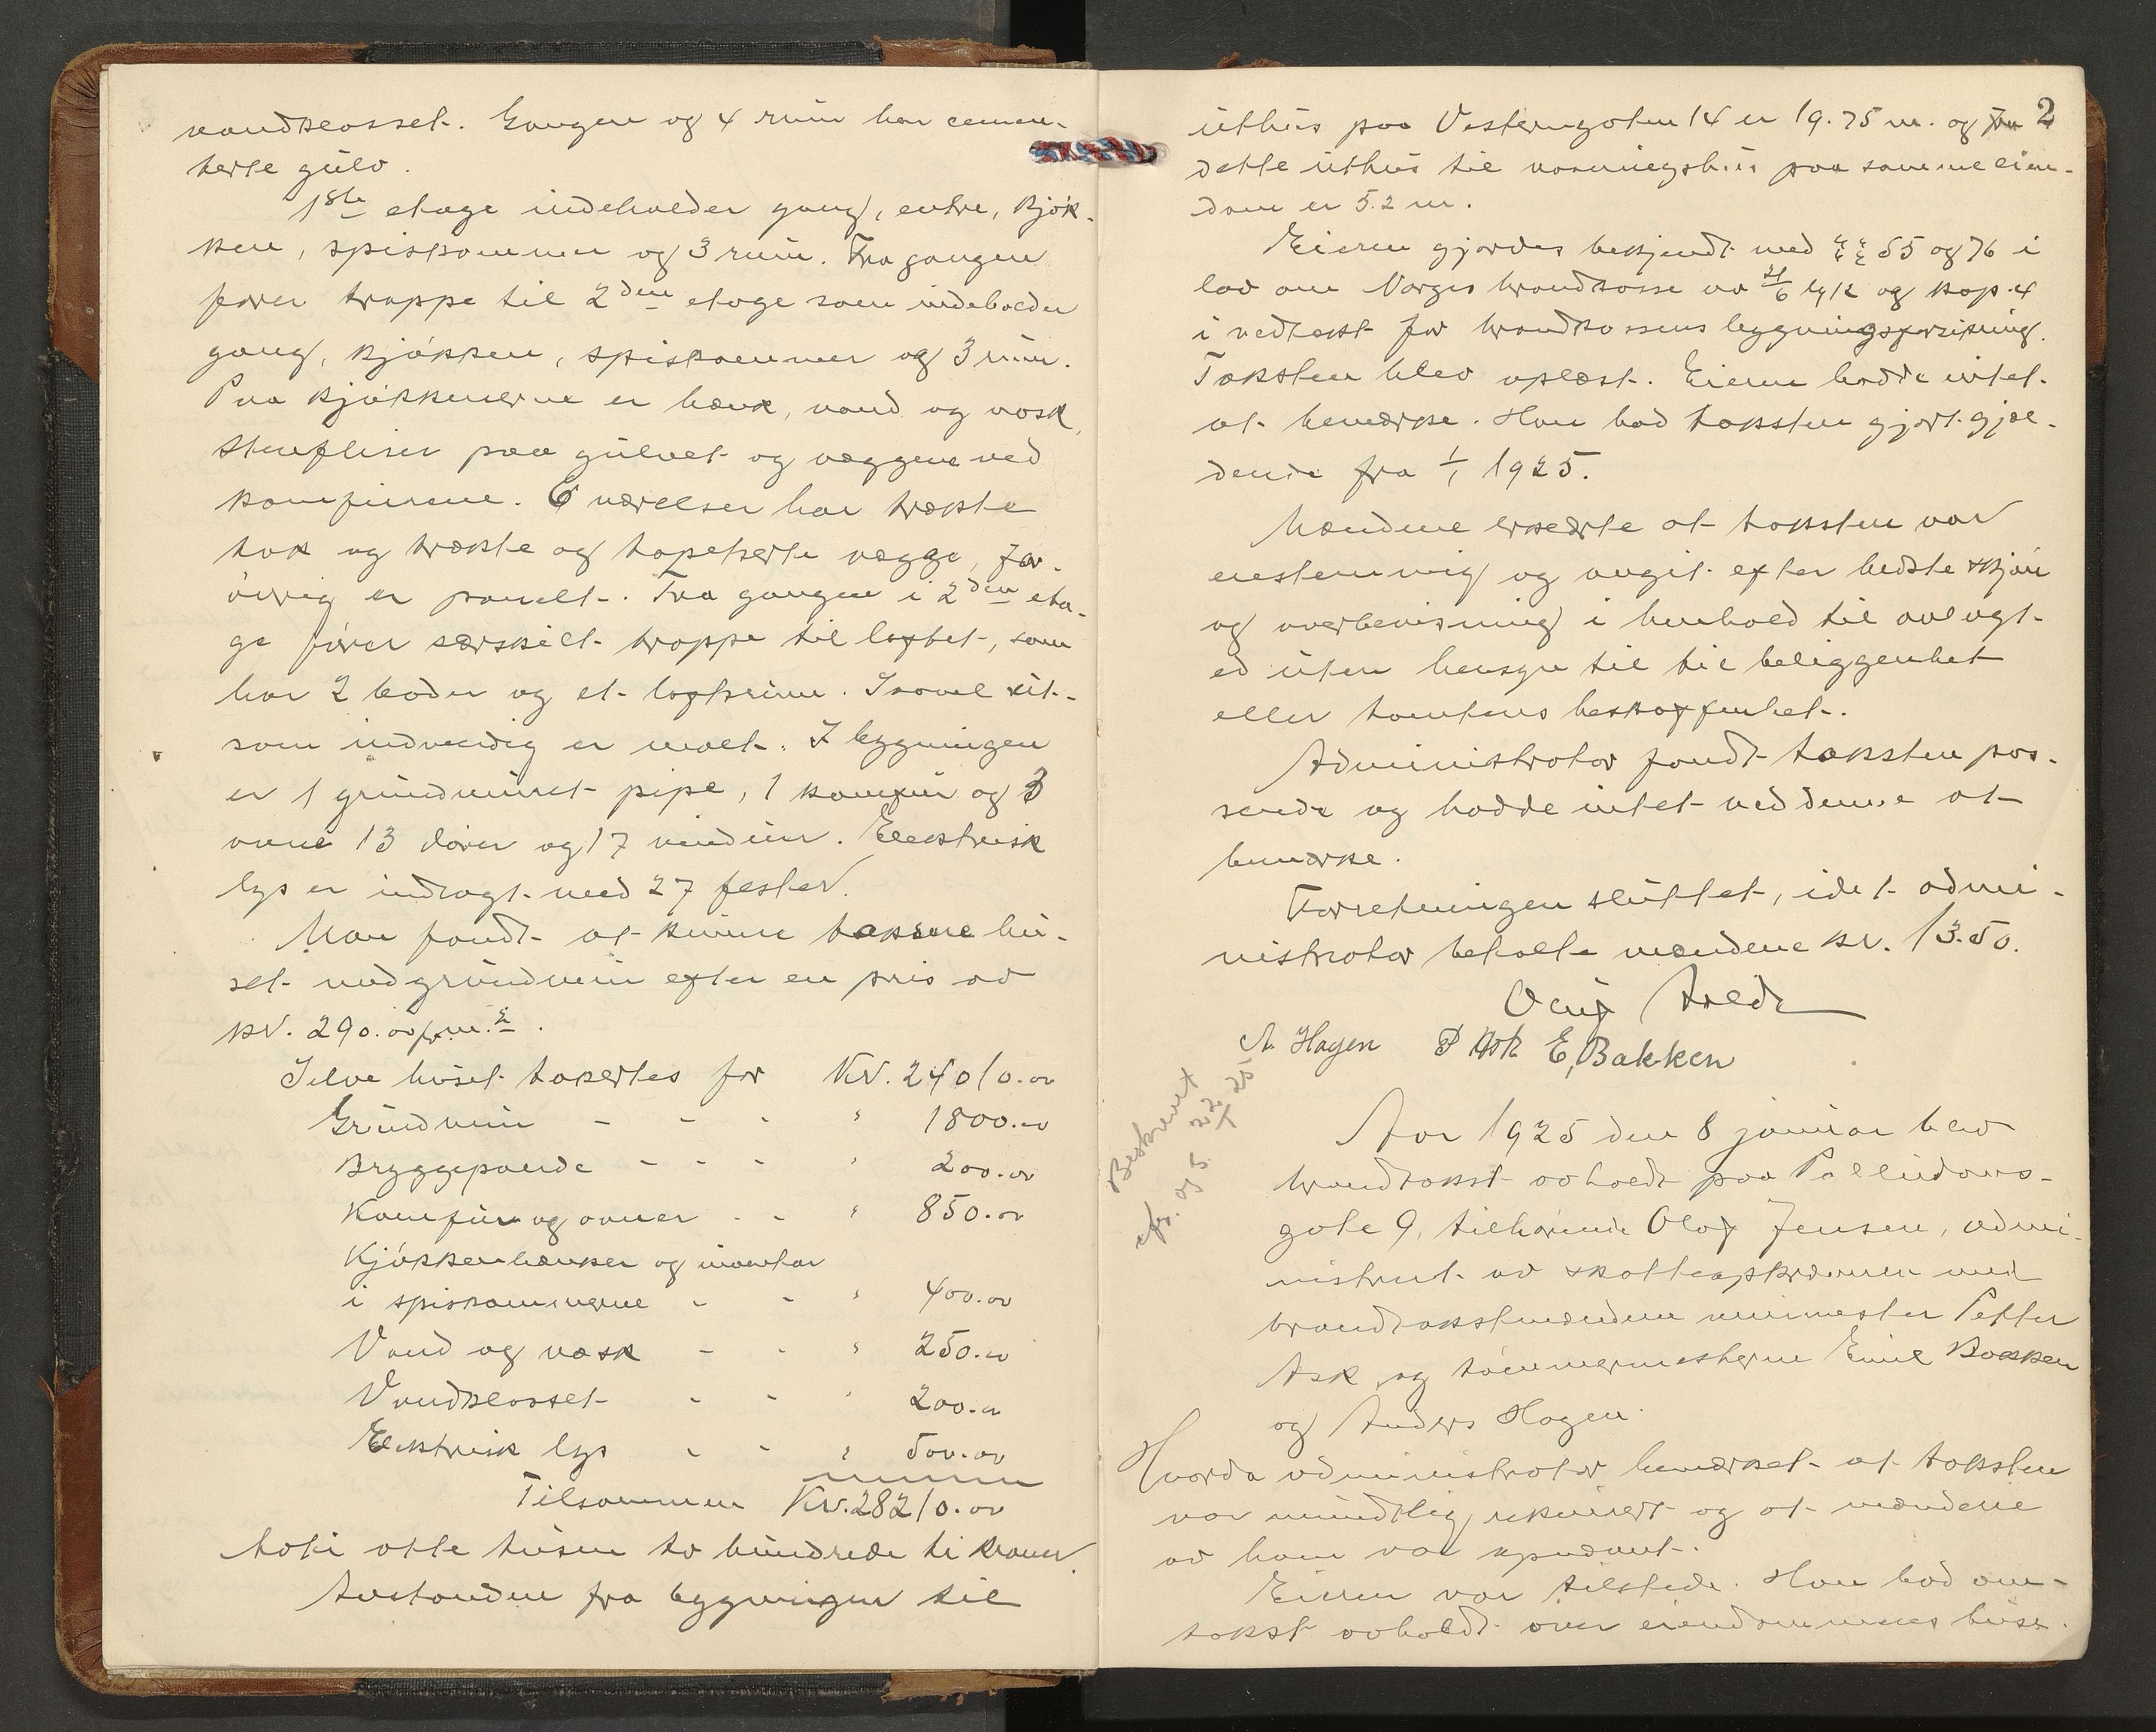 vandklosset. Gangen og 4 rum har cemen-
terte gulv.
1ste etage indeholder gang, entre, kjøk-
ken, spiskammer og 3 rum. Fra gangen
fører trappe til 2den etage som indeholder
gang, kjøkken, spiskammer og 3 rum.
Paa kjøkkenerne er bænk, vand og vask,
stenfliser paa gulvet og væggene ved
komfurene. 6 værelser har trækte
tak og trækte og tapeserte vægge, for-
øvrig er panelt. Fra gangen i 2den eta-
ge fører særskilt trappe til loftet, som
har 2 boder og et loftsrum. Saavel ut-
som indvendig er malt. I bygningen
er 1 grundmuret pipe, 1 komfur og 3
ovne 13 dører og 17 vinduer. Elektrisk
lys er indlagt med 27 fester.
Man fandt at kunne taksere hu-
set med grundmur efter en pris av
kr. 290.00 pr. m.2.
Selve huset takseres for Kr. 24010.00
Grundmur - - - " 1800.00
Bryggepande - - - " 200.00
Komfur og ovner - - " 850.00
Kjøkkenbænker og inventar
i spiskammerne - - " 400.00
Vand og vask - - " 250.00
Vandklosset - - " 200.00
Elektrisk lys - - " 500.00
Tilsammen Kr. 28210.00
toti otte tusen to hundrede ti kroner.
Avstanden fra bygningen til
2
uthus paa Vestengaten 14 er 19.75 m. og fra
dette uthus til vaaningshus paa samme eien-
dom er 5.2 m.
Eieren gjordes bekjendt med §§ 55 og 76 i
lov om Norges brandkasse av 21/6 1912 og kap. 4
i vedtækt for brandkassens bygningsforsikring.
Taksten blev oplæst. Eieren hadde intet
at bemærke. Han bad taksten gjort gjæl-
dende fra 1/1 1925.
Mændene erklærte at taksten var
enstemmig og avgit efter bedste skjøn
og overbevisning i henhold til avlagt
ed uten hensyn til til beliggenhet
eller tomtens beskaffenhet.
Administrator fandt taksten pas-
sende og hadde intet ved denne at
bemærke.
Forretningen sluttet, idet admi-
nistrator betalte mændene kr. 13.50.
A. Hagen P Ask E, Bakken
Beskrevet
Aar 1925 den 8 januar blev
brandtakst avholdt paa Palludans-
gate 9, tilhørende Olaf Jensen, admi-
nistrert av skatteopkræveren med
brandtakstmændene murmester Petter
Ask og tømmermesterne Emil Bakken
og Anders Hagen.
Hvorda administrator bemærket at taksten
var mundtlig rekvirert og at mændene
av ham var opnævnt.
Eieren var tilstede. Han bad om-
takst avholdt over eiendommens huse.